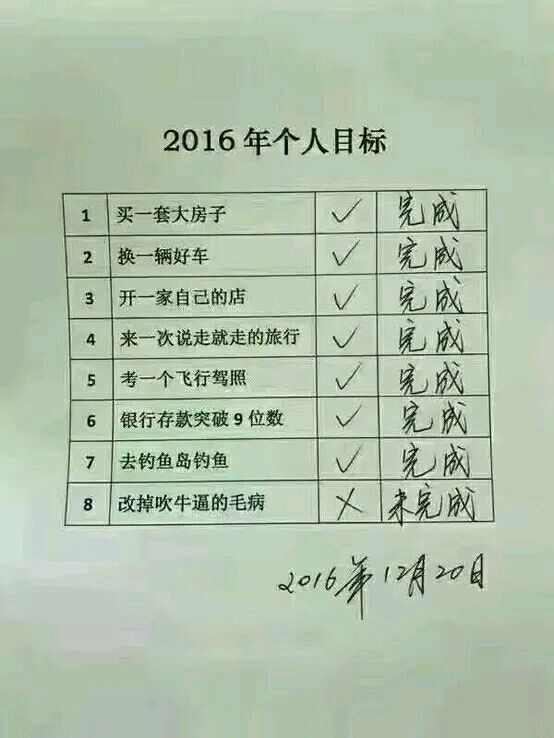 2016年个人目标
1 买一套大房子 ✓ 完成
2 换一辆好车 ✓ 完成
3 开一家自己的店 ✓ 完成
4 来一次说走就走的旅行 ✓ 完成
5 考一个飞行驾照 ✓ 完成
6 银行存款突破9位数 ✓ 完成
7 去钓鱼岛钓鱼 ✓ 完成
8 改掉吹牛逼的毛病 × 未完成
2016年12月20日